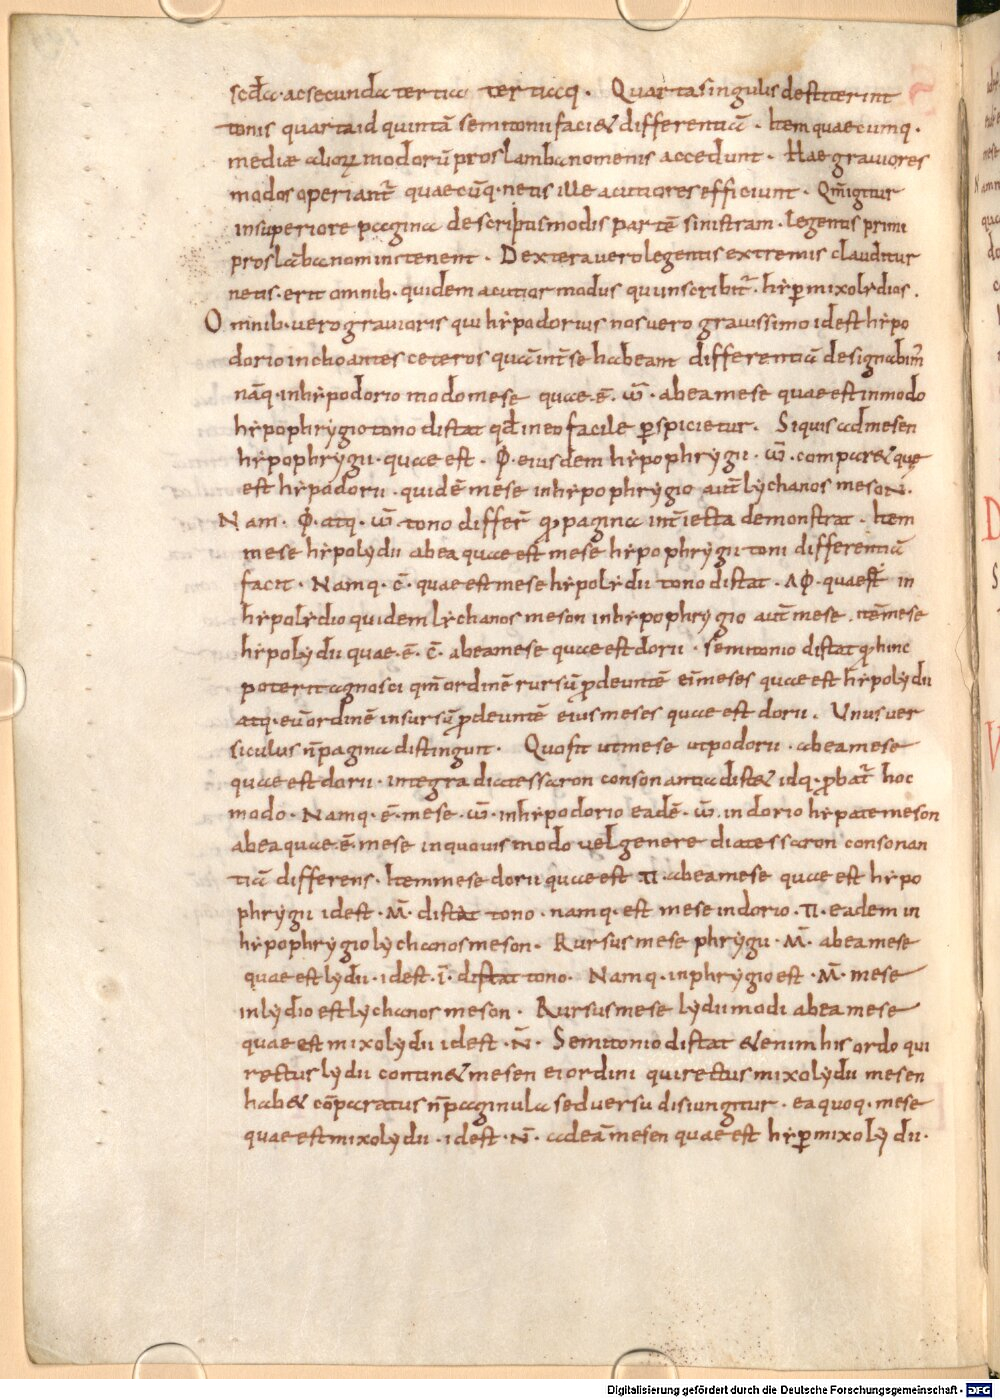 scda·ac secunda tertia tertiaq· Quarta singulis destiterint
tonis quarta id quintā semitonii faci& differentiā· Item quaecumq·
mediæ alioꝝ modorū proslambanomenis accedunt· Hae grauiores
modos operiant̄ quaecūq·netis ille acutiores efficiunt· Qm̄ igitur
in superiore pagina descriptis modis partē sinistram·legentis primi
proslābanomin·s tenent· Dextera uero legentis extremis clauditur
netis·erit omnib·quidem acutior modus qui inscribit̄·hẏꝑmixolẏdios·
Omnib·uero grauioris qui hẏpodorius nos uero grauissimo id est hẏpo
dorio inchoantes ceteros quā int̄ se habeant differentiā designabim̄
nāq·in hẏpodorio modo mese quae·ē·ω̄·ab ea mese quae est in modo
hẏpophrẏgio tono distat qđ in eo facile ꝑspicietur· Si quis ad mesen
hẏpophrẏgii·quae est·Φ·eiusdem hẏpophrẏgii·ω̄·compar& que
est hẏpodorii·quidē mese in hẏpophrẏgio aut̄ lẏchanos meson·
Nam·Φ·atq·ω̄·tono differt̄ ꝙ pagina int̄iecta demonstrat·Item
mese hẏpolẏdii ab ea quae est mese hẏpophrẏgii toni differentiā
facit·Namq·c̄·quae est mese hẏpolẏdii tono distat·AΦ·quae est in
hẏpolẏdio quidem lẏchanos meson in hẏpophrẏgio aut̄ mese·itē mese
hẏpolẏdii quae·ē·c̄·ab ea mese quae est dorii·semitonio distat ꝙ hinc
poterit agnosci qm̄ ordinē rursū ꝓdeuntē ei᷒ meses quae est hẏpolẏdii
atq·eū ordinē in sursū ꝓdeuntē eius meses quae est dorii· Unus uer
siculus n̄ pagina distingunt· Quo fit ut mese utpodorii·ab ea mese
quae est dorii·integra diatessaron consonantia dist& idq·ꝓbat̄ hoc
modo·Namq·ē·mese·ω̄·in hẏpodorio eadē·ω̄·in dorio hẏpate meson
ab ea quae·ē·mese in quouis modo uel genere diatessaron consonan
tiā differens·Item mese dorii quae est π·ab ea mese quae est hẏpo
phrẏgii id est·M̄·distat tono·namq·est mese in dorio·π·eadem in
hẏpophrẏgio lẏchanos meson· Rursus mese phrẏgii·M̄·ab ea mese
quae est lẏdii·id est·ī·distat tono· Namq·in phrẏgio est·M̄·mese
in lẏdio est lẏchanos meson· Rursus mese lẏdii modi ab ea mese
quae est mixolẏdii id est·N̄· Semitonio distat &enim his ordo qui
rectus lẏdii contin& mesen ei ordini qui rectus mixolẏdii mesen
hab& cōparatus n̄ paginula sed uersu disiungitur·ea quoq·mese
quae est mixolẏdii·id est·N̄·ad eā mesen quae est hẏꝑmixolẏdii·
Digitalisierung gefördert durch die Deutsche Forschungsgemeinschaft - DFG